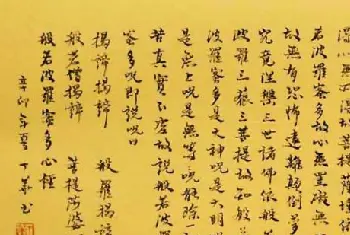 若波羅蜜多故心無罣礙無
故無有恐怖遠離顛倒夢
究竟涅槃三世諸佛依般
羅三藐三菩提故知般
波羅蜜多是大神咒是大明
是無上咒是無等咒能除一
苦真實不虛故說般若波
蜜多咒即說咒曰
揭諦揭諦 般羅揭
般若僧揭諦 菩提薩婆
般若波羅蜜多心經
辛卯 丁 書